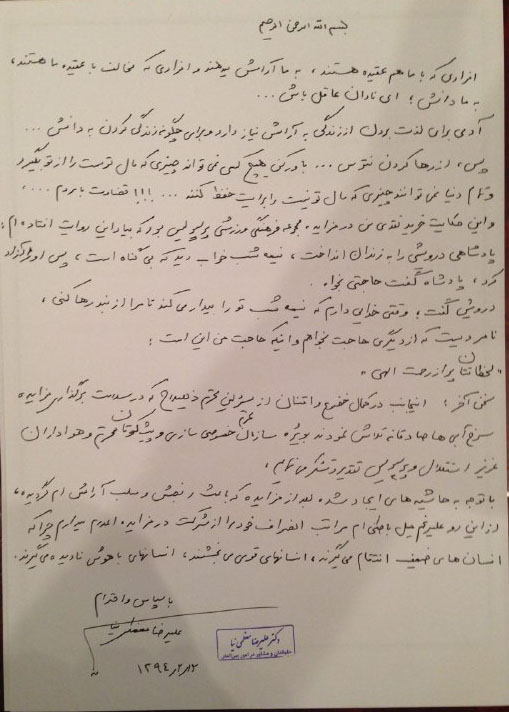 بسم الله الرحمن الرحیم
افرادی که با ما هم عقیده هستند، به ما آرامش میدهند و افرادی که مخالف با عقیده ما هستند،
به ما دانش؛ ای نادان عاقل باش ...
آدمی برای لذت بردن از زندگی به آرامش نیاز دارد و برای چگونه زندگی کردن به دانش ...
پس، از رها کردن نترس ... باور کن هیچ کس نمی تواند چیزی که مال توست را از تو بگیرد
و تمام دنیا نمی توانند چیزی که مال تو نیست را برایت حفظ کنند ... !!! قضاوت با مردم ...،
و این حکایت خرید نقدی من در مزایده مجموعه فرهنگی ورزشی پرسپولیس بود که بیاد این روایت افتاده ام:
پادشاهی درویشی را به زندان انداخت، نیمه شب خواب دید که بی گناه است، پس او را آزاد
کرد، پادشاه گفت حاجتی بخواه.
درویش گفت: وقتی خدایی دارم که نیمه شب تو را بیدار می کند تا مرا از بند رها کنی،
نامردیست که از دیگری حاجت بخواهم و اینکه حاجت من این است:
"لحظاتتان پر از رحمت الهی"
سخن آخر؛ اینجانب در کمال خضوع و امتنان از مسئولین محترم ذیصلاح که در سلامت برگذاری مزایده
سرخ آبی ها صادقانه تلاش نمودند بویژه سازمان محترم خصوصی سازی و پیشکسوتان محترم و هواداران
عزیز استقلال و پرسپولیس تقدیر و تشکر می نمایم.
با توجه به حاشیه های ایجاد شده بعد از مزایده که باعث رنجش و سلب آرامش ام گردیده،
از این رو علیرغم میل باطنی ام مراتب انصراف خود را از شرکت در مزایده اعلام میدارم چرا که
انسان های ضعیف انتقام می گیرند، انسانهای قوی می بخشند، انسانهای باهوش نادیده می گیرند.
با سپاس و احترام
علیرضا
دکتر علیرضا
۱۳۹۴